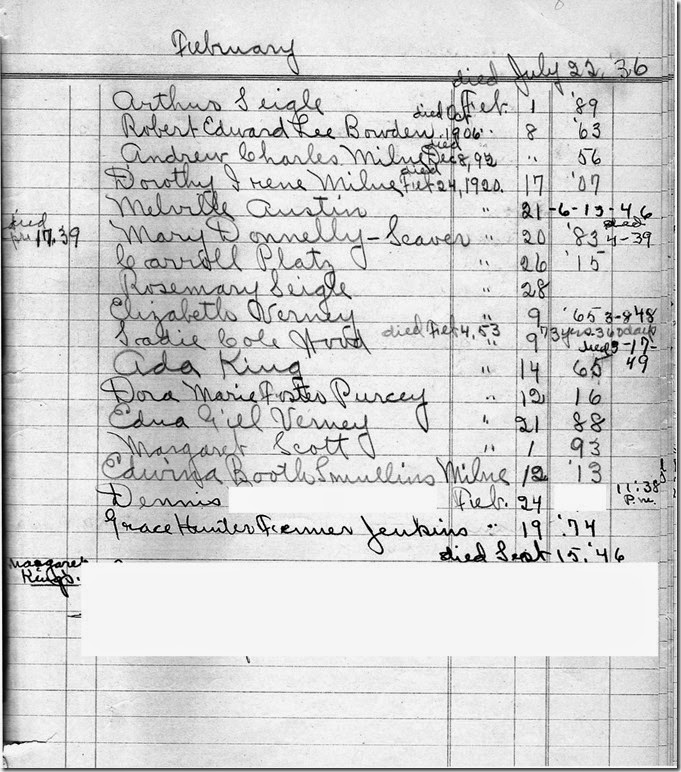 February
died July 22, '36
Arthur Seigle Feb. 1 '89
Robert Edward Lee Bowden died Oct 1906 " 8 '63
Andrew Charles Milne died Dec 8, 92 " 56
Dorothy Irene Milne died Feb 24, 1920. 17 '07
Melville Austin " 21 -6-13-46
died 17.39 Mary Donnelly-Seaver " 20 '83 died 4-39
Carroll Platz " 26 '15
Rosemary Seigle " 28
Elizabeth Verney " 9 '65 3-8-48
Sadie Cole Hood died Feb 4, 53 " 9 73 yrs. 360 days
died 3-17-49
Ada King " 14 65
Dora Marie Foster Purcey " 12 16
Edna Gill Verney " 21 88
Margaret Scott " 1 93
Edwina Booth Smullins Milne 12 '13
Dennis Feb. 24 11:38 P.m.
Grace Hunter Farmer Jenkins " 19 '74
died Sept 15, '46
Margaret King's.